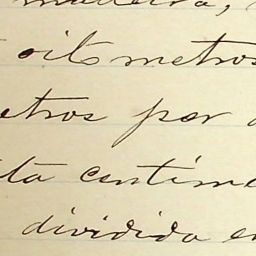 madeira,
oito metros
etros por
ta centime
dividida en